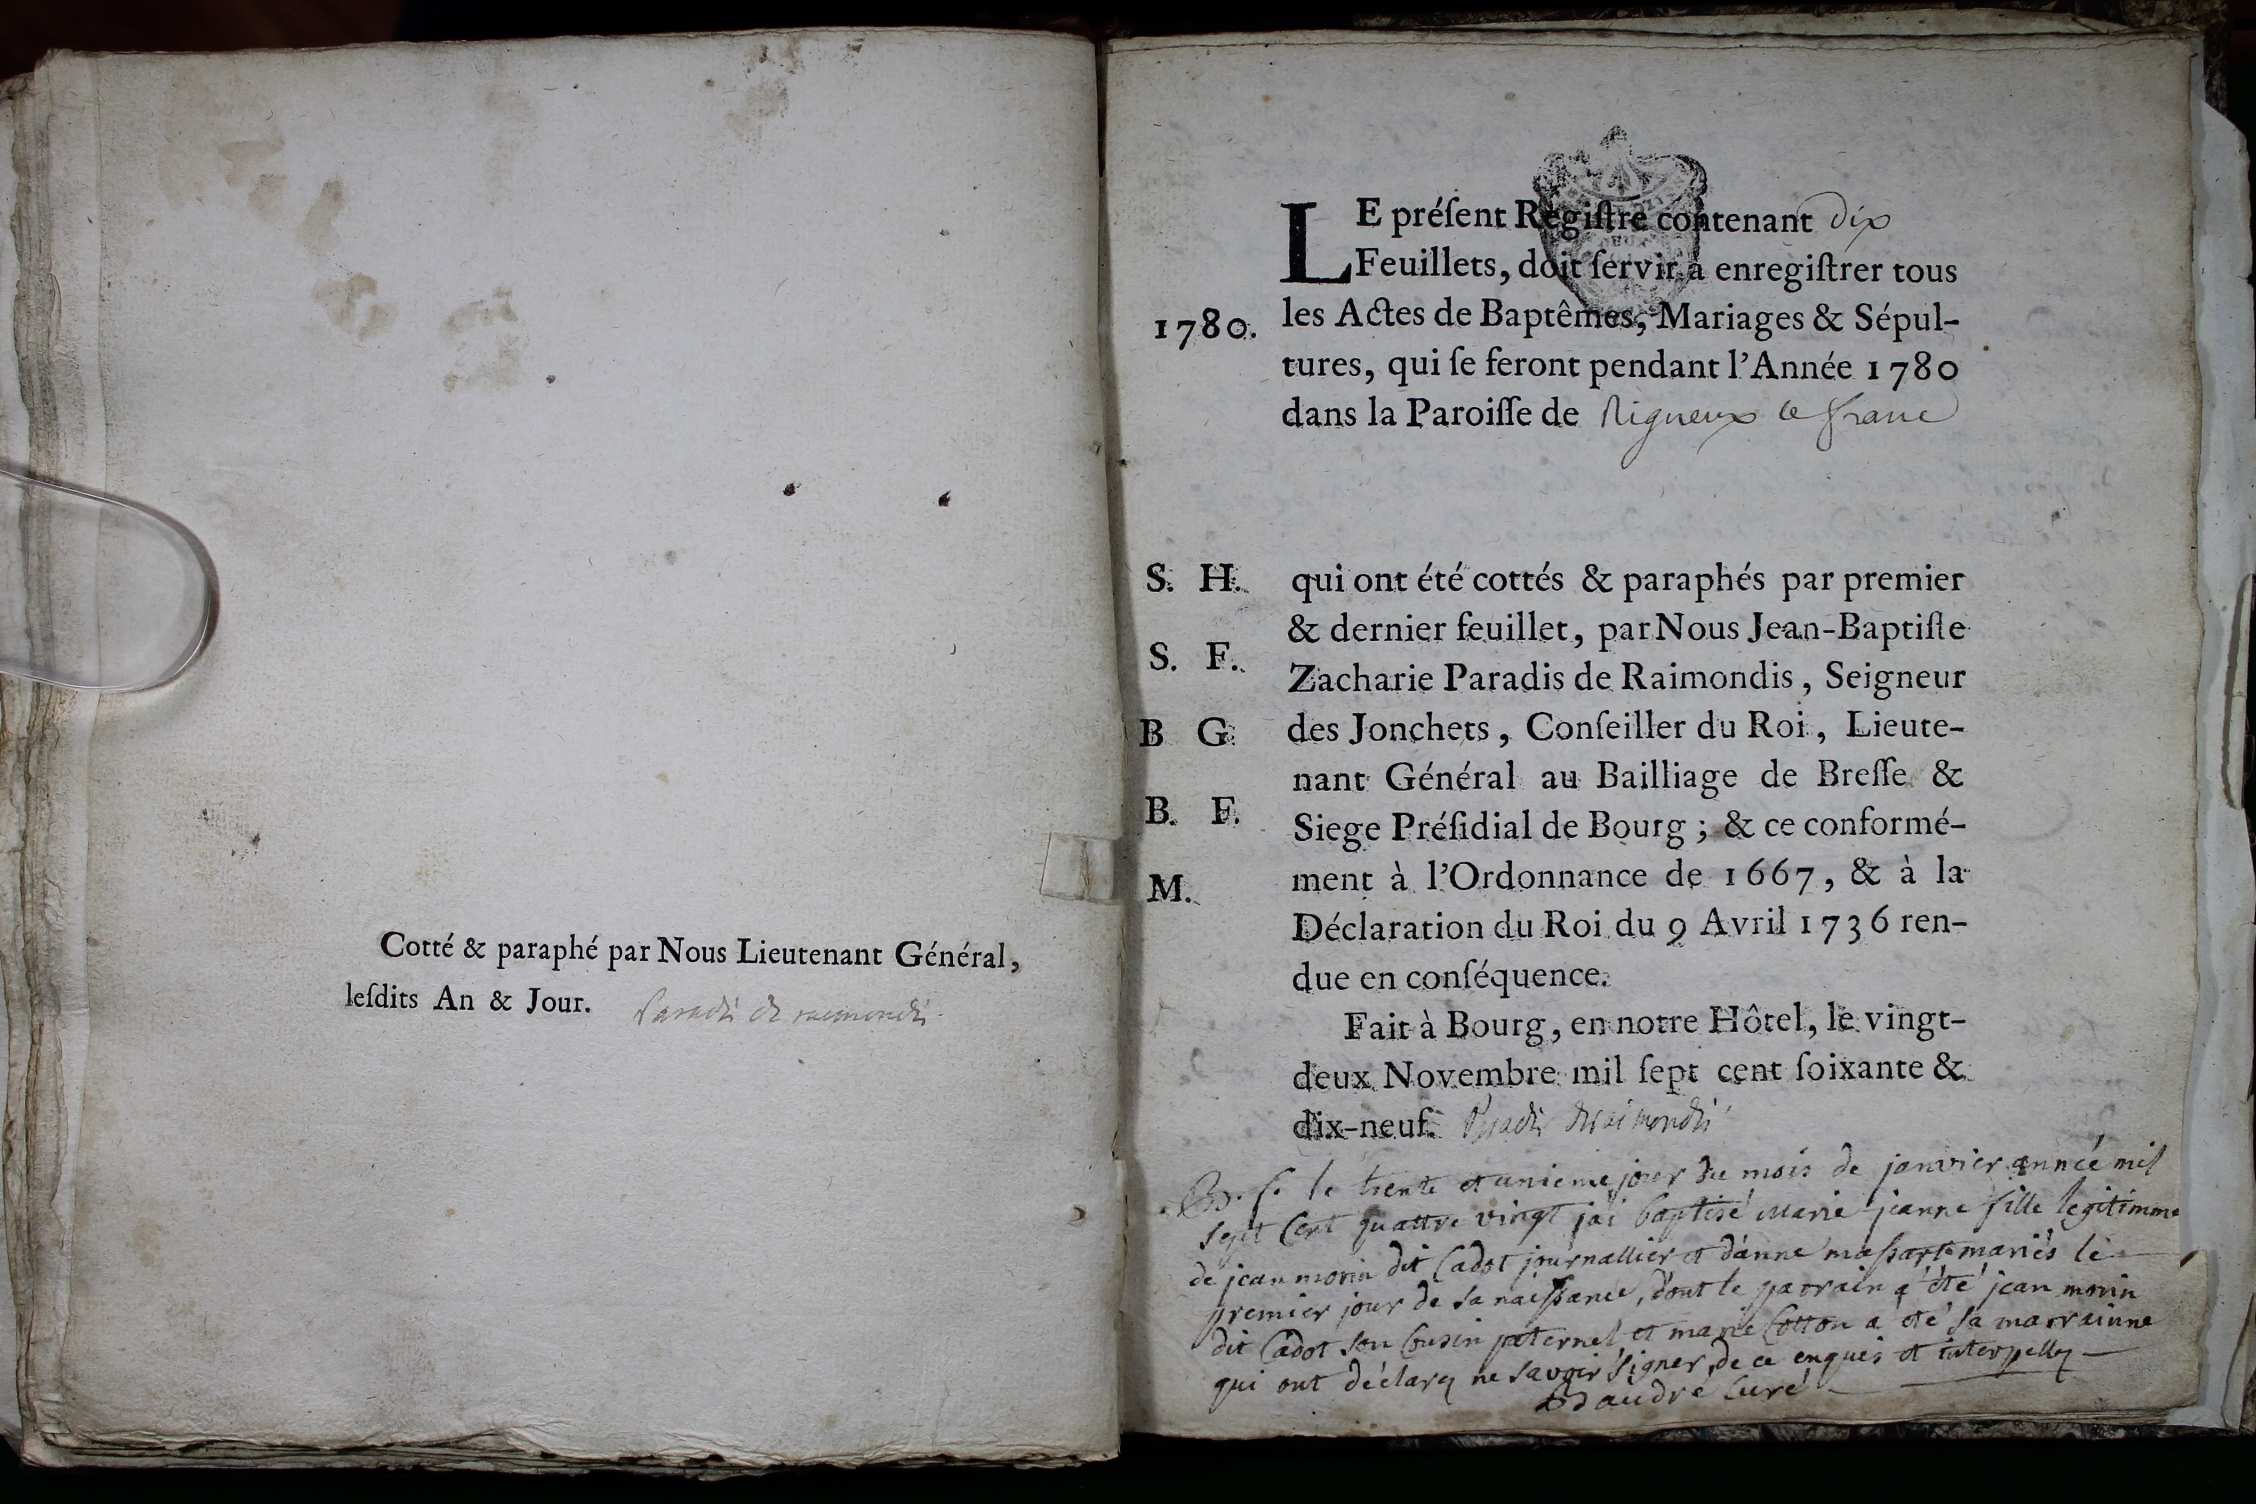 Cotté & paraphé par Nous Lieutenant Général,
leſdits An & Jour. Paradis de raimondis
LE préſent Regiſtre contenant dix
Feuillets, doit ſervir à enregiſtrer tous
1780. les Actes de Baptêmes, Mariages & Sépul-
tures, qui ſe feront pendant l'Année 1780
dans la Paroiſſe de Rigneux le franc
S. H. qui ont été cottés & paraphés par premier
& dernier feuillet, par Nous Jean-Baptiſte
S. F. Zacharie Paradis de Raimondis, Seigneur
B G. des Jonchets, Conſeiller du Roi, Lieute-
nant Général au Bailliage de Breſſe &
B. F. Siege Préſidial de Bourg ; & ce conformé-
M. ment à l'Ordonnance de 1667, & à la
Déclaration du Roi du 9 Avril 1736 ren-
due en conſéquence.
Fait à Bourg, en notre Hôtel, le vingt-
deux Novembre mil ſept cent ſoixante &
dix-neuf. Paradis de raimondis
B. f. le trente et unieme jour du mois de janvier année mil
sept Cent quattre vingt jai baptisé Marie jeanne fille legitimme
de jean morin dit Cadot journallier et d'anne mariés le
premier jour de sa naissance, dont le parrain a été jean morin
dit Cadot son Cousin paternel et marie Cotton a été sa marrainne
qui ont déclaré ne savoir signer de ce enquis et interpellés
Baudré Curé